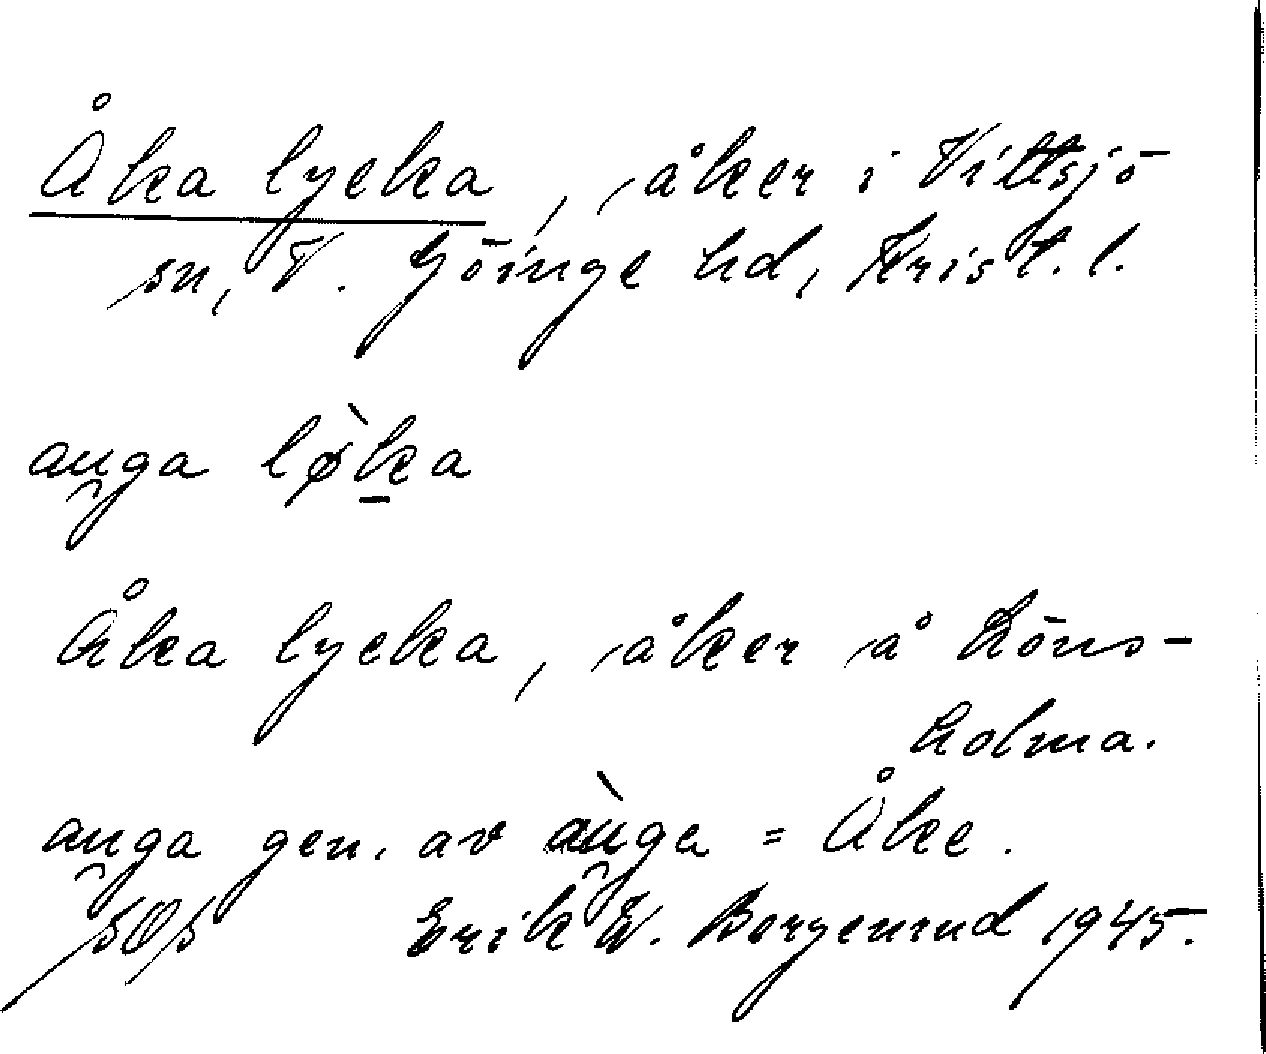 Åka lycka, åker i Vittsjö
sn, V. Göinge hd, Krist. l.
au̯ga lø̀ka
Åka lycka, åker å Höns-
holma.
au̯ga gen. av àu̯ga = Åke.
SOS Erik W. Borgenrud 1945.